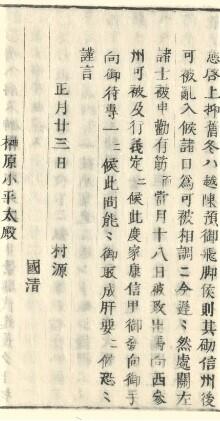 態啓上抑舊冬ハ越陳預御飛脚候則其砌信州後
可被亂入候諸口爲可被相調ニ今遅ミ然處關左
諸士被申勸有筋而當月十八日被致出馬向西參
州可被及行義定ニ候此度家康信甲御發向御手
向御待專一ニ候此間能ミ御取成肝要ニ候恐ミ
謹言
正月廿三日　村源
國清
榊原小平太殿